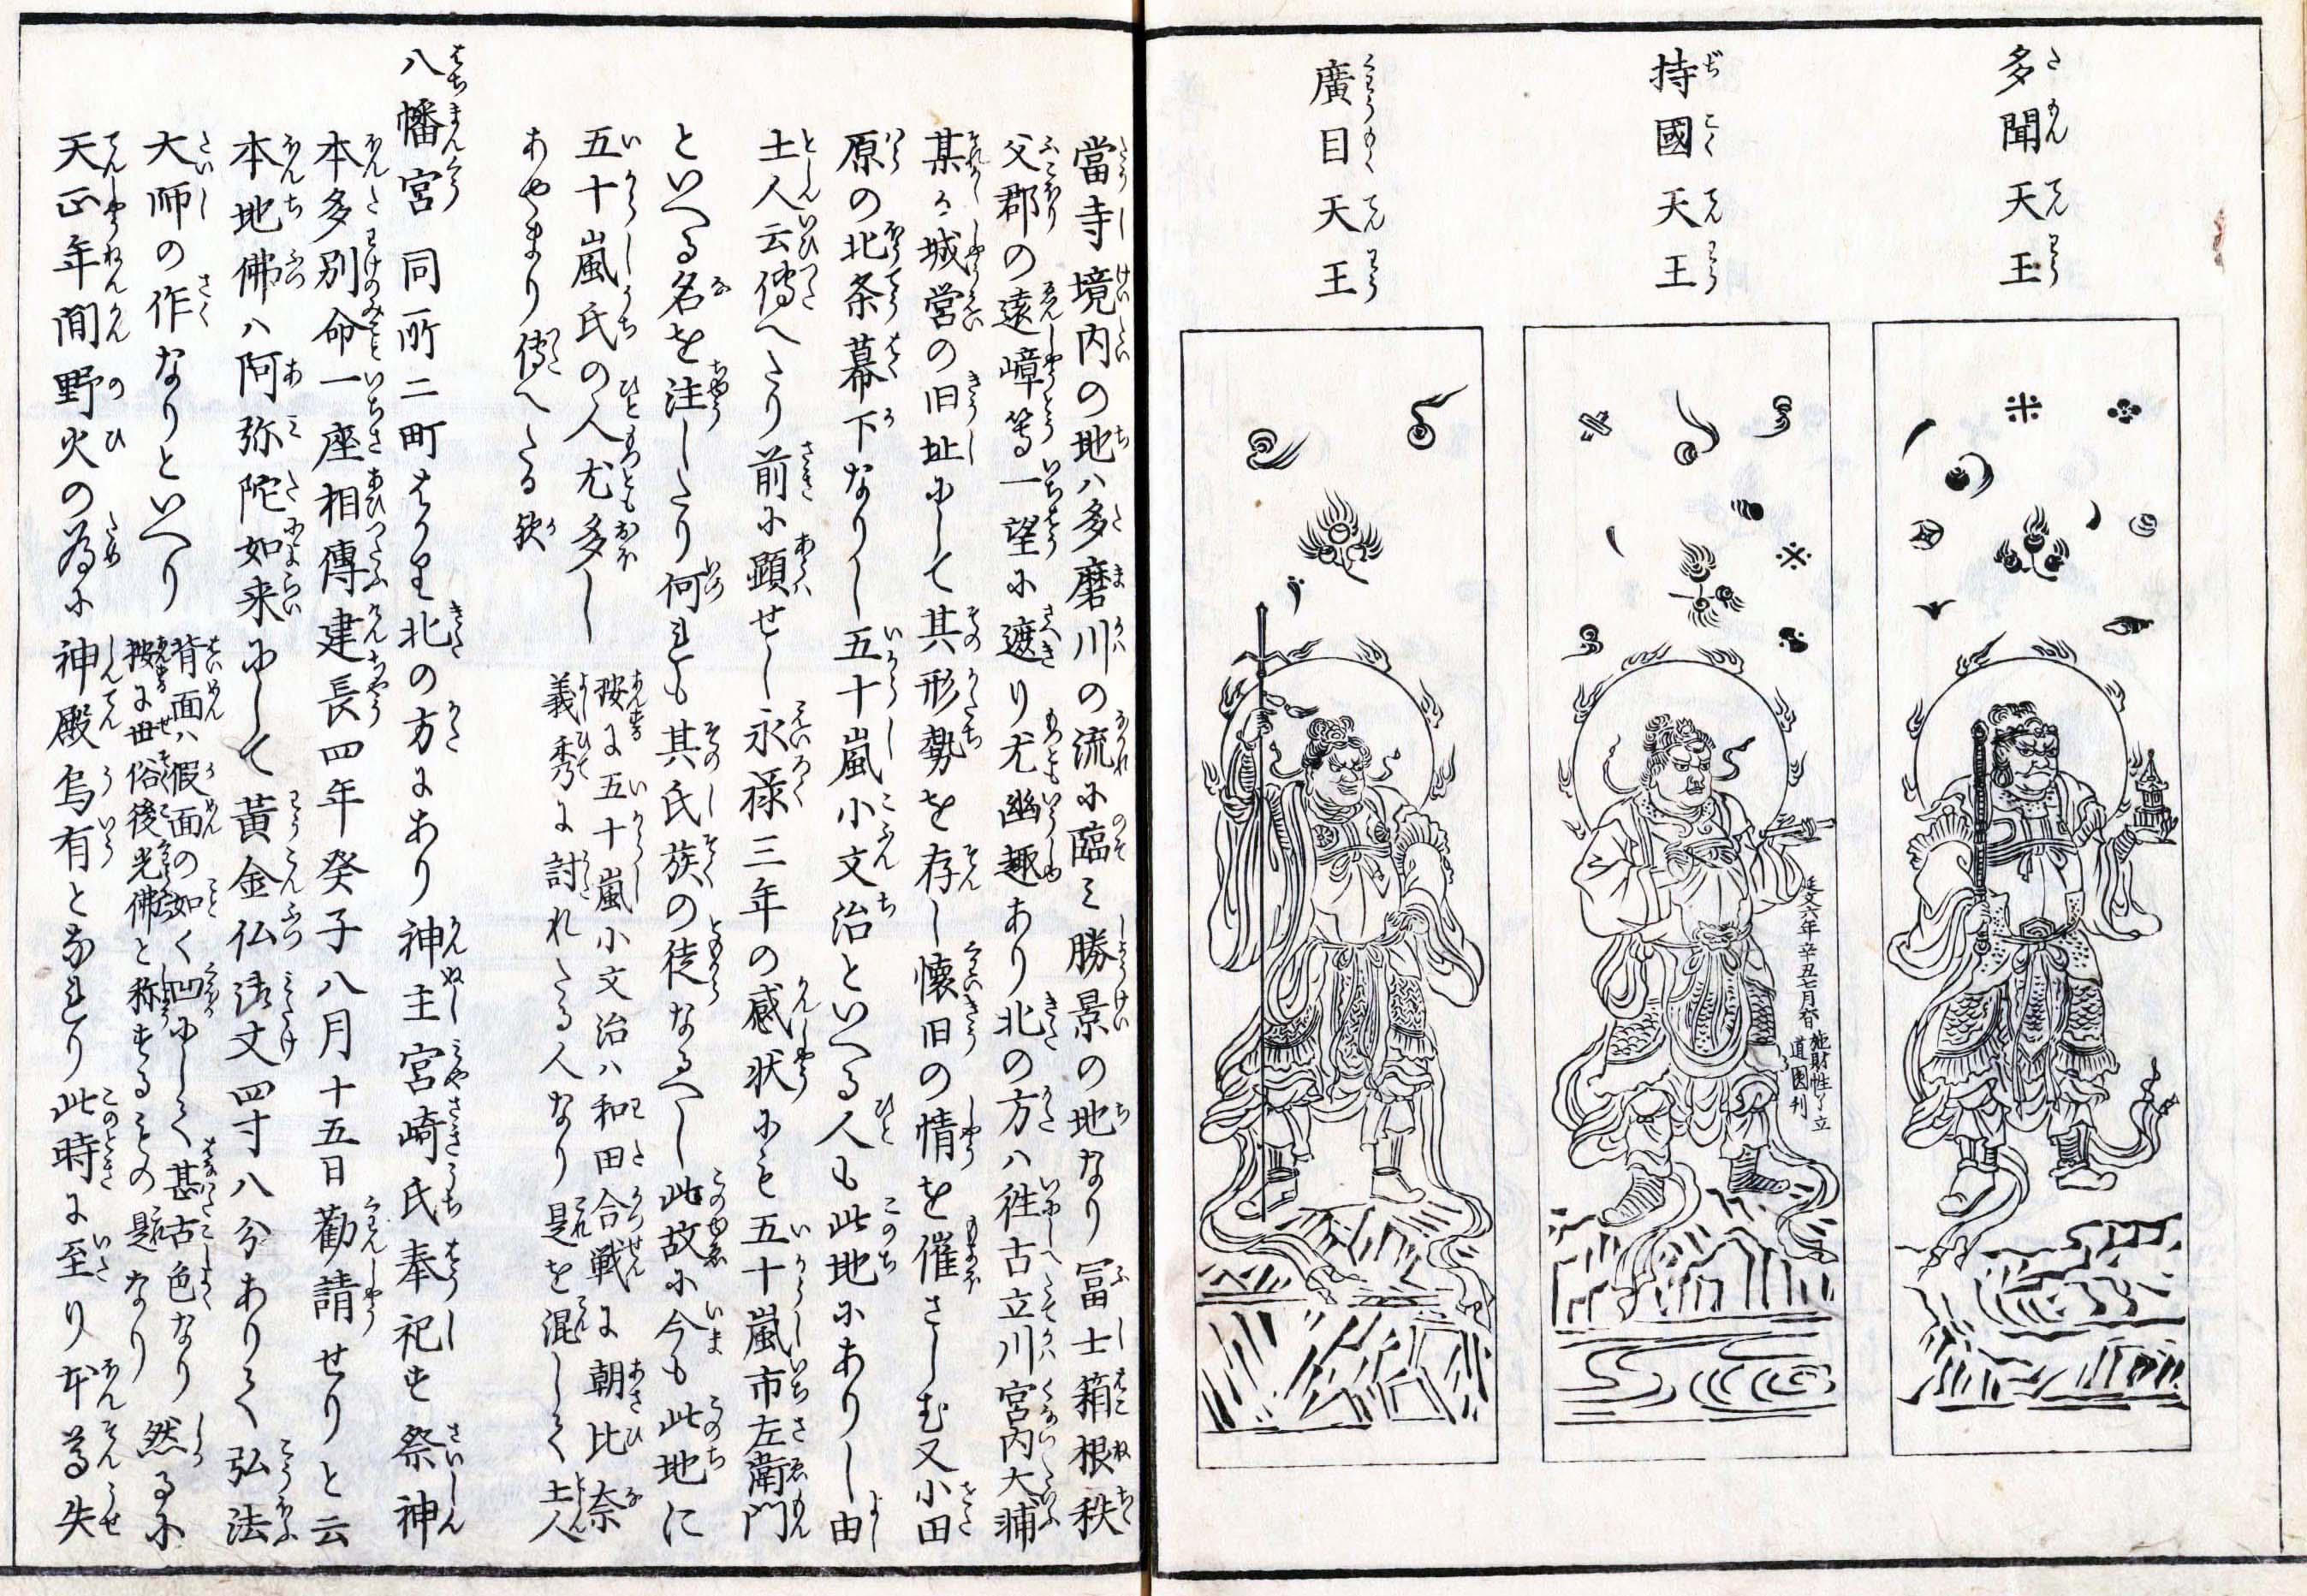 多聞天王
持國天王
廣目天王
延文六年辛丑七月春 施財性了立
道圓刊
當寺境内の地ハ多磨川の流に臨ミ勝景の地なり冨士箱根秩
父郡の遠嶂等一望に遮り尤幽趣あり北の方ハ徃古立川宮内大輔
某々城営の旧址にして其形勢を存し懐旧の情を催さしむ又小田
原の北条幕下なりし五十嵐小文治といへる人も此地にありし由
土人云傳へたり前に顕せし永禄三年の感状にも五十嵐市左衛門
といへる名を注したり何れも其氏族の徒なるへし此故に今も此地に
五十嵐氏の人尤多し 按に五十嵐小文治ハ和田合戦に朝比奈
義秀に討れたる人なり是を混して土人
あやまり傳へたる歟
八幡宮 同所二町はかり北の方にあり神主宮崎氏奉祀す祭神
本多別命一座相傳建長四年癸子八月十五日勸請せりと云
本地佛ハ阿弥陀如来にして黄金仏御丈四寸八分ありて弘法
大師の作なりといへり 背面ハ假面の如く凹にして甚古色なり然るに
按に世俗後光佛と称するもの是なり
天正年間野火の為に神殿烏有となれり此時に至り本尊失